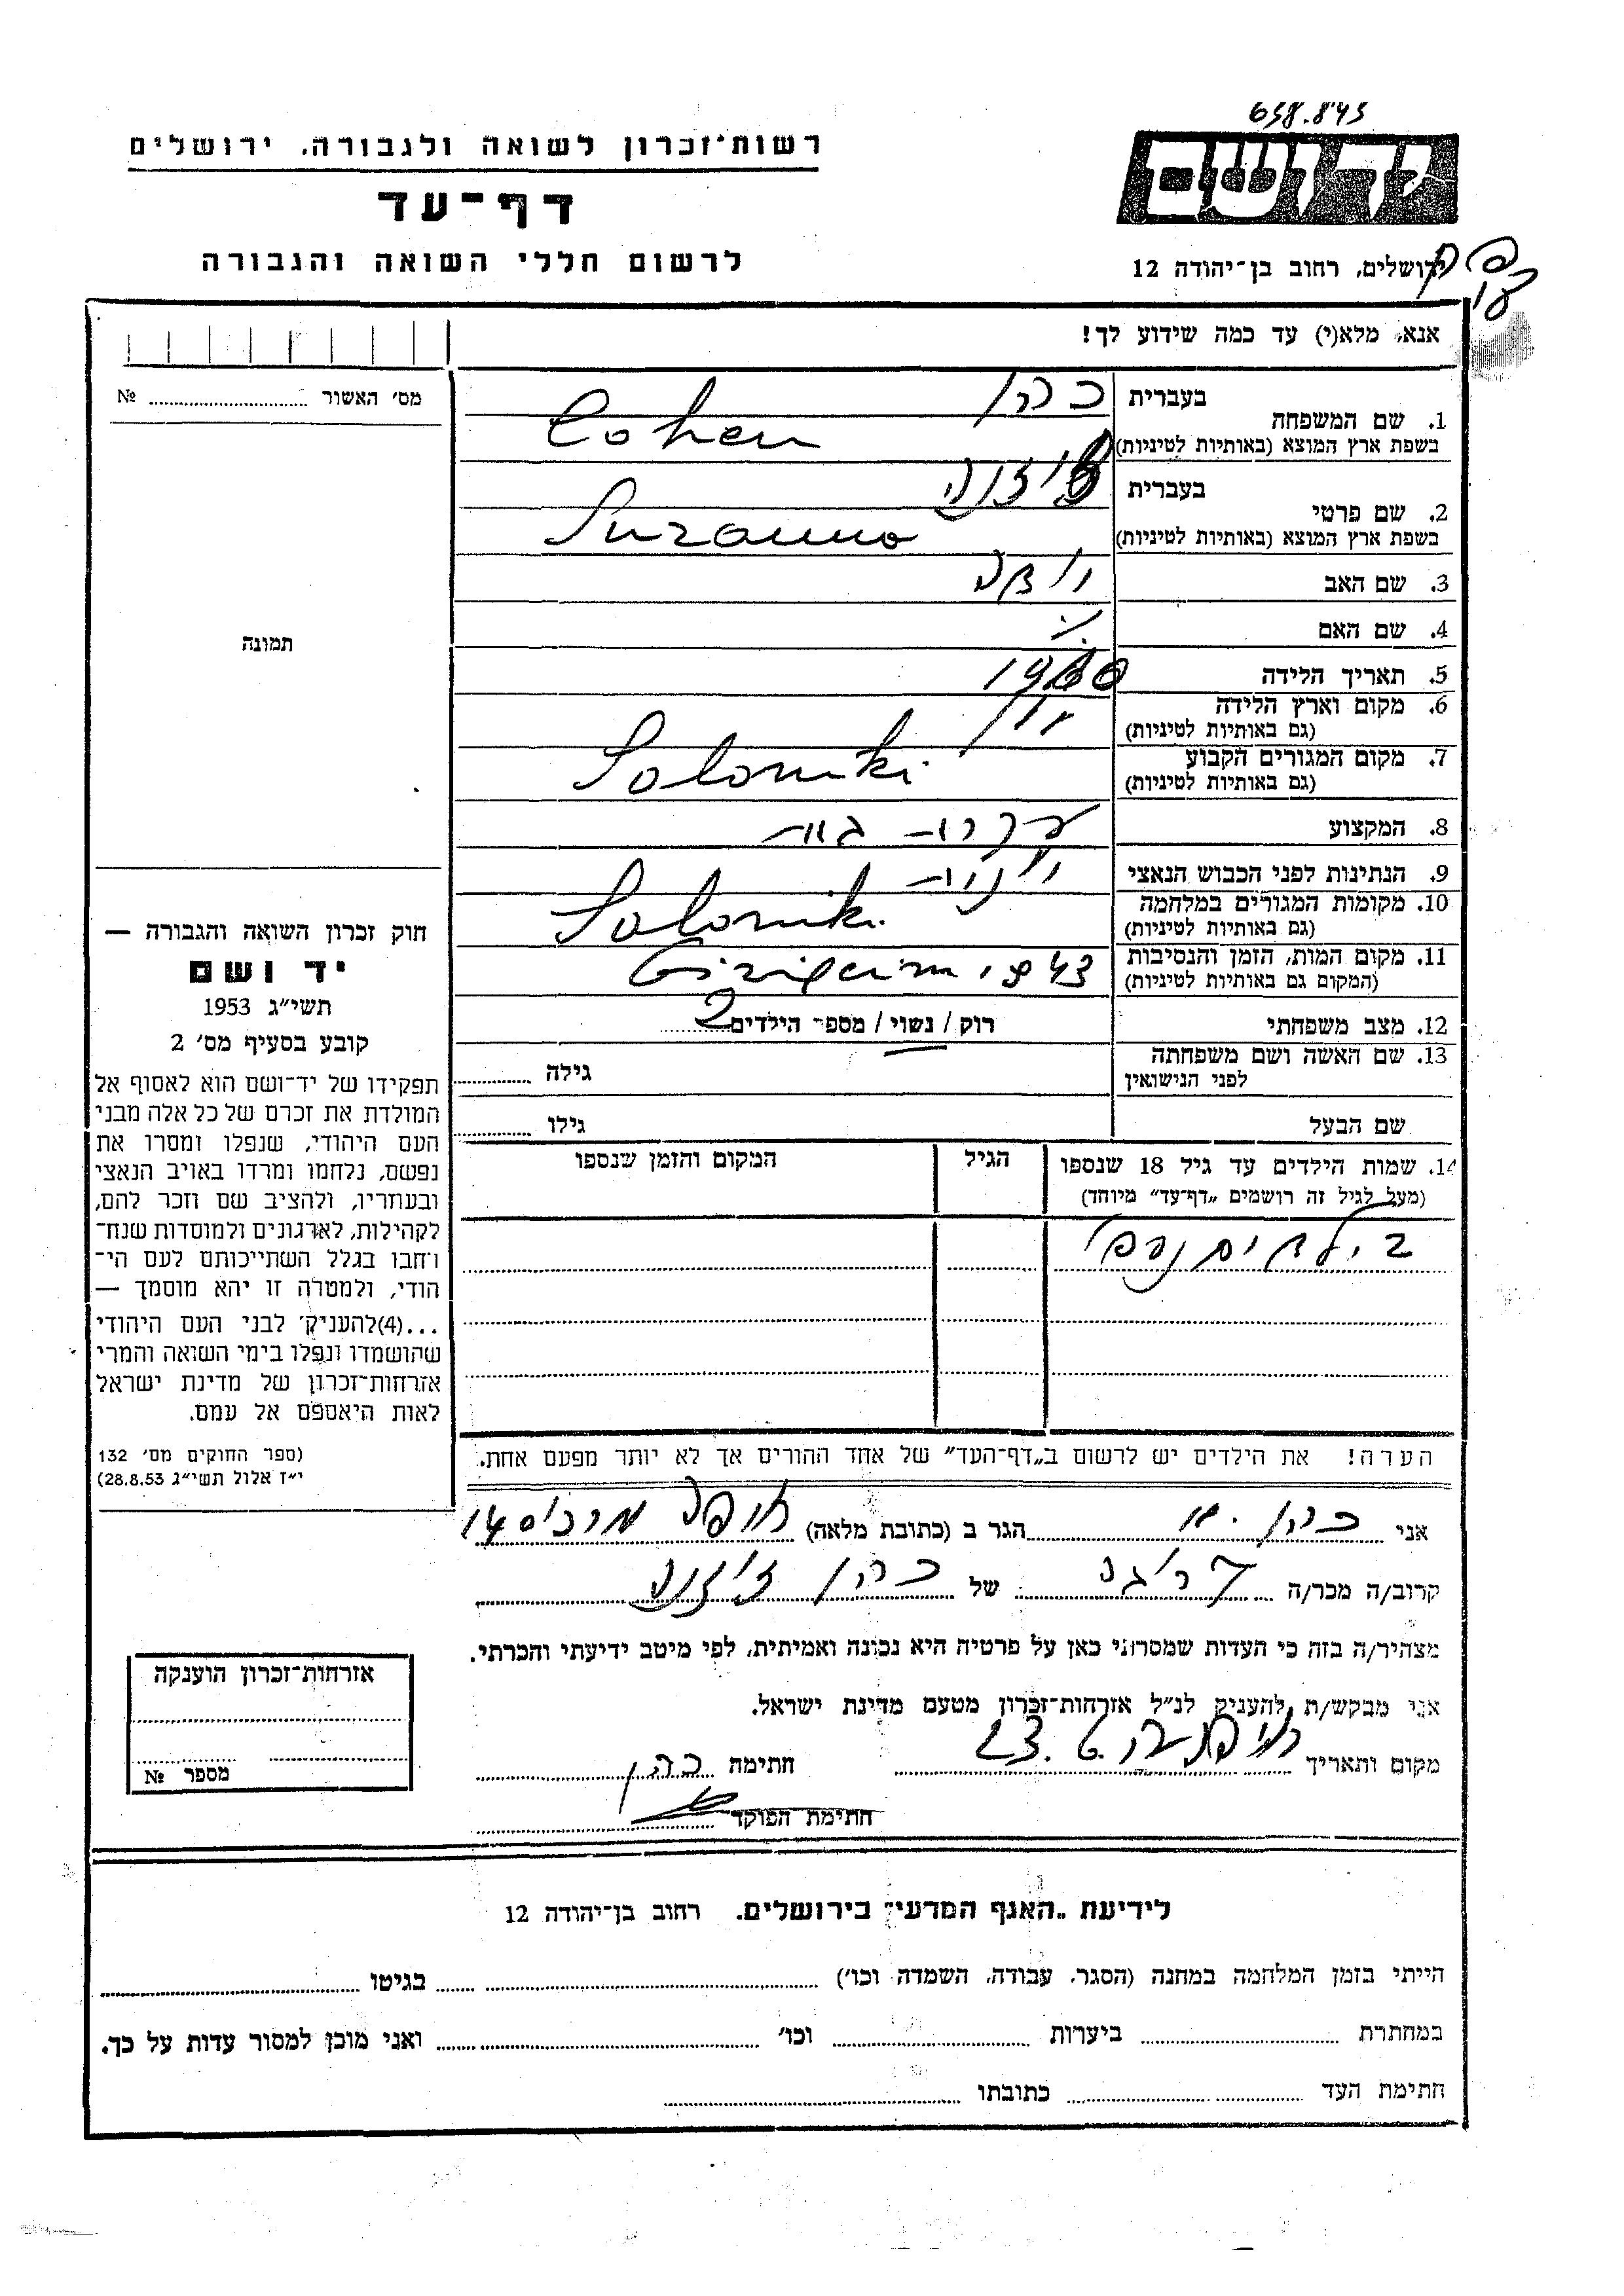 658.843
רשות־זכרון לשואה ולגבורה, ירושלים
יד ושם
דף־עד
לרשום חללי השואה והגבורה
ירושלים, רחוב בן־יהודה 12
אנא, מלא(י) עד כמה שידוע לך!
מס׳ האשור № 
1. שם המשפחה
בעברית כהן
בשפת ארץ המוצא (באותיות לטיניות) Cohen
2. שם פרטי
בעברית
בשפת ארץ המוצא (באותיות לטיניות)
3. שם האב
4. שם האם
תמונה
5. תאריך הלידה
6. מקום וארץ הלידה יון
(גם באותיות לטיניות)
7. מקום המגורים הקבוע Saloniki
(גם באותיות לטיניות)
8. המקצוע עקרת בית
9. הנתינות לפני הכבוש הנאצי יונית
10. מקומות המגורים במלחמה Saloniki
(גם באותיות לטיניות)
11. מקום המות, הזמן והנסיבות 1943
(המקום גם באותיות לטיניות)
12. מצב משפחתי רוק / נשוי / מספר הילדים 2
13. שם האשה ושם משפחתה גילה
לפני הנישואין
שם הבעל גילו
14. שמות הילדים עד גיל 18 שנספו הגיל המקום והזמן שנספו
(מעל לגיל זה רושמים „דף־עד” מיוחד)
2 ילדים נספו
הערה! את הילדים יש לרשום ב„דף־העד” של אחד ההורים אך לא יותר מפעם אחת.
חוק זכרון השואה והגבורה —
יד ושם
תשי״ג 1953
קובע בסעיף מס׳ 2
תפקידו של יד־ושם הוא לאסוף אל
המולדת את זכרם של כל אלה מבני
העם היהודי, שנפלו ומסרו את
נפשם, נלחמו ומרדו באויב הנאצי
ובעוזריו, ולהציב שם וזכר להם,
לקהילות, לארגונים ולמוסדות שנח־
רבו בגלל השתייכותם לעם הי־
הודי, ולמטרה זו יהא מוסמך —
...(4)להעניק לבני העם היהודי
שהושמדו ונפלו בימי השואה והמרי
אזרחות־זכרון של מדינת ישראל
לאות היאספם אל עמם.
(ספר החוקים מס׳ 132
י״ז אלול תשי״ג 28.8.53)
אני כהן הגר ב (כתובת מלאה) חיפה
קרוב/ה מכר/ה של כהן
מצהיר/ה בזה כי העדות שמסרתי כאן על פרטיה היא נכונה ואמיתית, לפי מיטב ידיעתי והכרתי.
אני מבקש/ת להעניק לנ״ל אזרחות־זכרון מטעם מדינת ישראל.
מקום ותאריך חתימה כהן
חתימת הפוקד
אזרחות־זכרון הוענקה
מספר №
לידיעת „האגף המדעי” בירושלים, רחוב בן־יהודה 12
הייתי בזמן המלחמה במחנה (הסגר, עבודה, השמדה וכו׳) בגיטו
במחתרת ביערות וכו׳ ואני מוכן למסור עדות על כך.
חתימת העד כתובתו